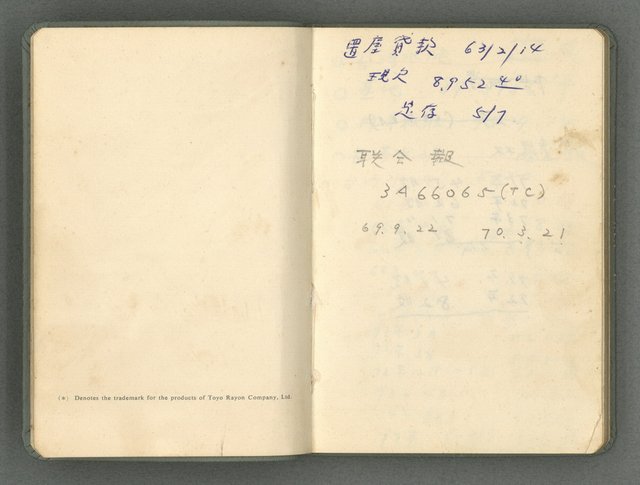 (*) Denotes the trademark for the products of Toyo Rayon Company, Ltd.
置産貸款 63/2/14
現欠 8,952.40
总存 5/7
联合報
3466065(TC)
69.9.22 70.3.21